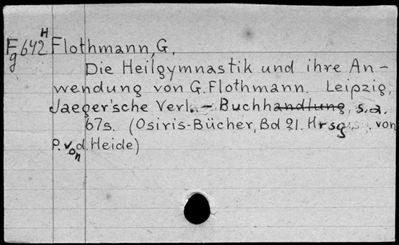 Fg 642 H Flothmann, G.
Die Heilgymnastik und ihre An-
wendung von G. Flothmann. Leipzig,
Jaeger'sche Verl. - Buchhandlung, s.a.
67s. (Osiris-Bücher, Bd 21. Hrsg. von
P. von d. Heide)